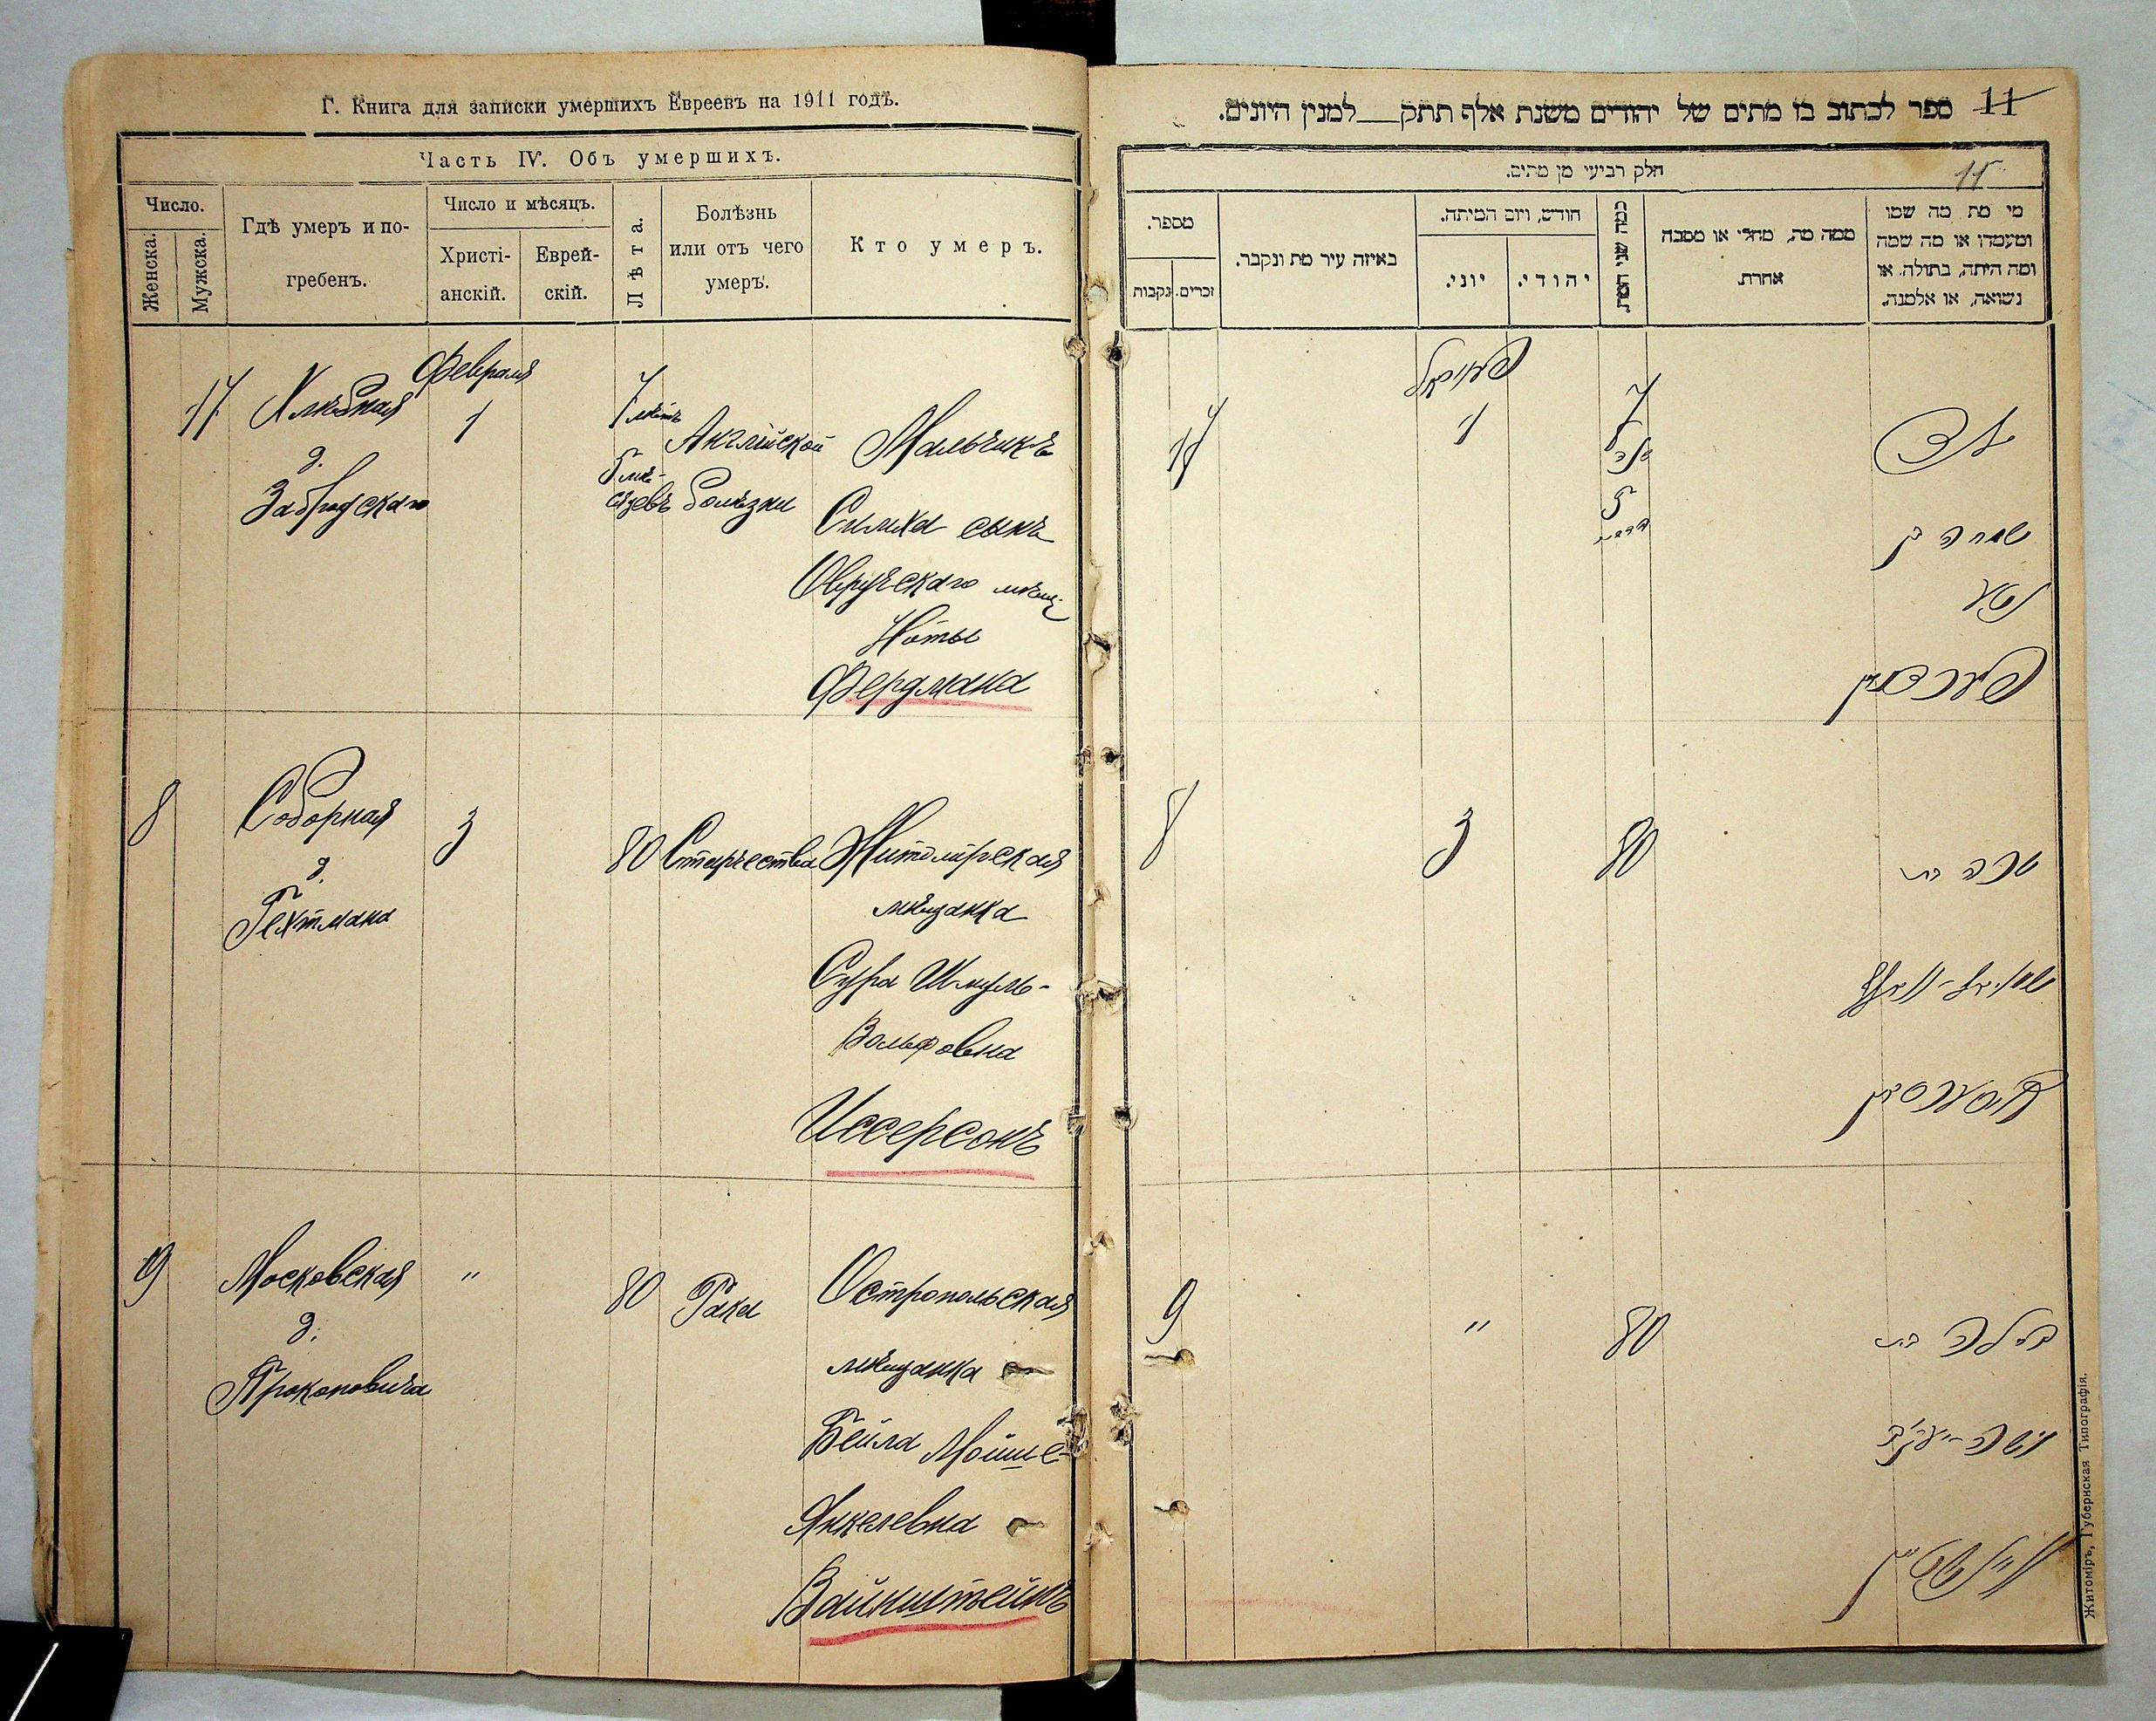 Г. Книга для записки умершихъ Евреевъ на 1911 годъ.
Часть IV. Объ умершихъ.
Число.
Женска.
Мужска.
Гдѣ умеръ и по-
гребенъ.
Число и мѣсяцъ.
Христі-
анскій.
Еврей-
скій.
Лѣта.
Болѣзнь
или отъ чего
умеръ.
Кто умеръ.
17
Хлѣбная
д.
Забродскаго
Февраля
1
7 лѣтъ
5 мѣ-
сяцевъ
Англійской
болѣзни
Мальчикъ
Симха сынъ
Овручскаго мѣщ.
Ноты
Фердмана
8
Соборная
д.
Гехтмана
3
80
Старчества
Житомірская
мѣщанка
Сура Шмуль-
Вольфовна
Иссерсонъ
9
Московская
д.
Прокоповича
"
80
Рака
Остропольская
мѣщанка
Бейла Мойше-
Янкелевна
Вайнштейнъ
ספר לכתוב בו מתים של יהודים משנת אלף תתק __ למנין היונים.
11
11
חלק רביעי מן מתים.
מספר.
נקבות
זכרים.
באיזה עיר מת ונקבר.
חודש, ויום המיתה.
יוני.
יהודי.
כמה שני המת
ממה מת, מחלי או מסבה
אחרת.
מי מת מה שמו
ומעמדו או מה שמה
ומה היתה, בתולה או
נשואה, או אלמנה.
17
1
7
5
ילד
שמחה בן
נטע
פערדמאן
8
3
80
שרה בת
שמואל-וואלף
9
"
80
ביילה בת
משה-יעקב
וויינשטיין
Житоміръ, Губернская Типографія.